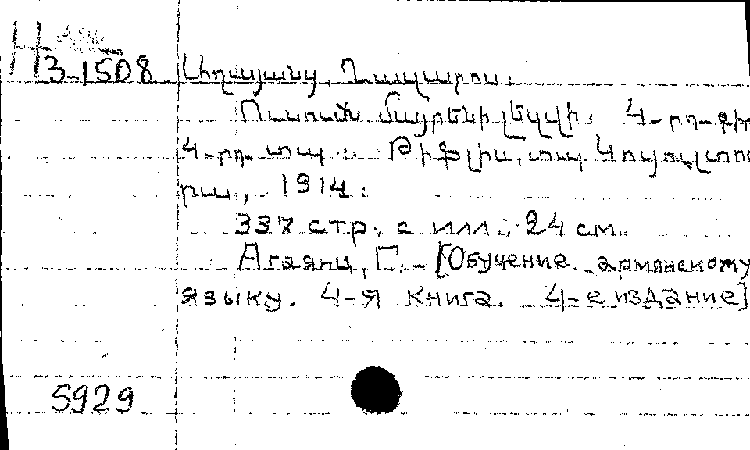 H3-1508
Աղայանց, Ղազարոս.
Ուսումն մայրենի լեզվի. 4-րդ գիրք
4-րդ տպ. Թիֆլիս, տպ.
րա, 1914.
337 стр. с илл.; 24 см.
Агаянц, Г. - [Обучение армянскому
языку. 4-я книга. 4-е издание]
5929